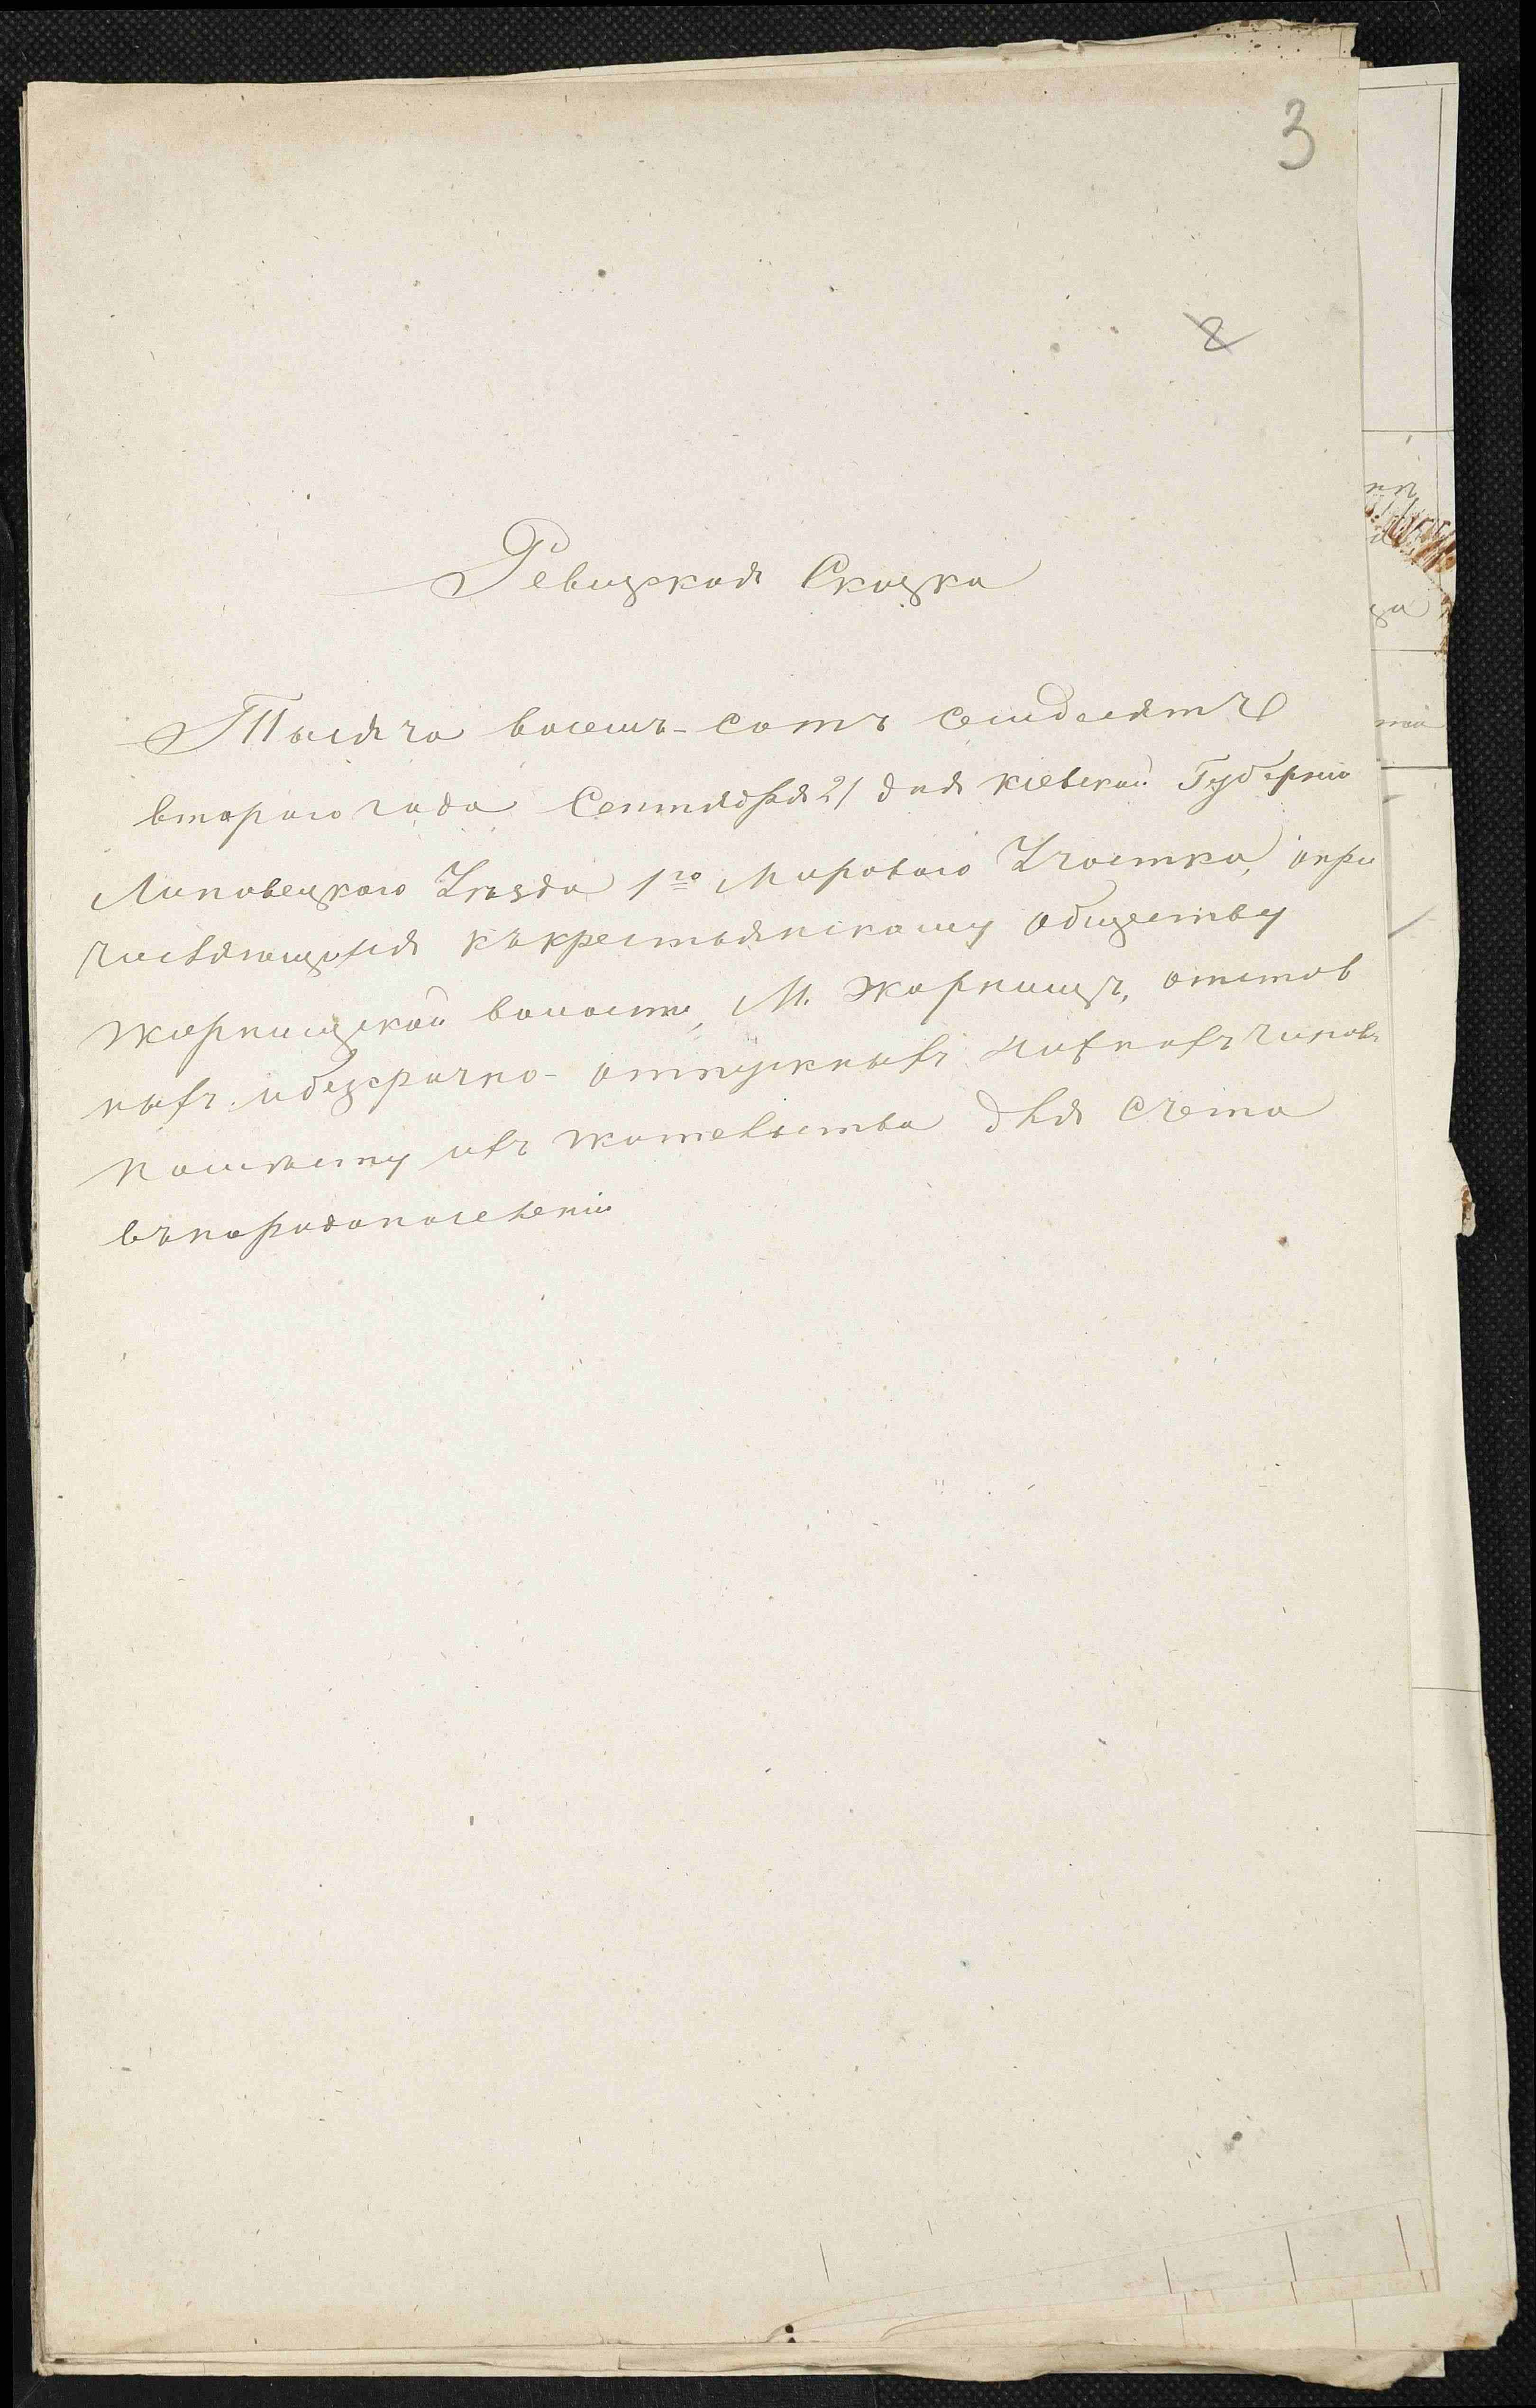 3
2
Ревизская Сказка
Тысяча восемь-сотъ семдесятъ
второго года Сентября 21 дня Кіевской Губерніи
Липовецкого Уѣзда 1го Мирового Участка, о при
числяющихся къ крестьянскому обществу
Жорнищской волости, М. Жорнищъ, отстав
ныхъ и безсрочно-отпускныхъ нижнихъ чиновъ
по мѣсту ихъ жительства для счета
въ народонаселеніи